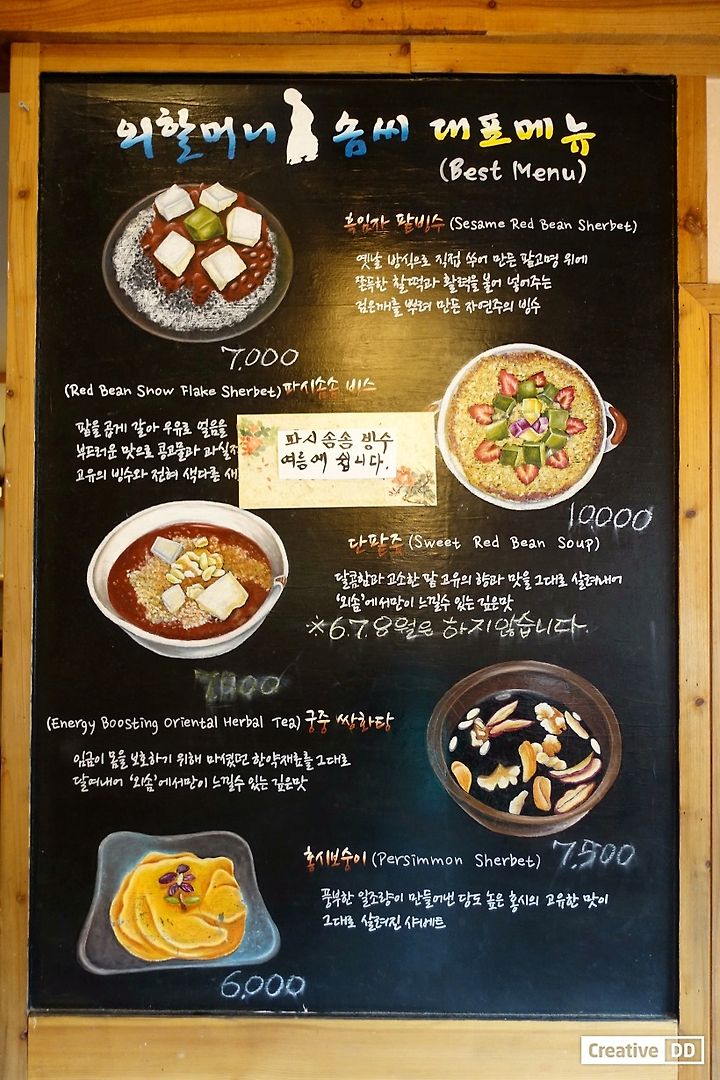 외할머니 솜씨 대표메뉴
(Best Menu)
흑임자 팥빙수 (Sesame Red Bean Sherbet)
옛날 방식으로 직접 쑤어 만든 팥고명 위에
쫀득한 찰떡과 활력을 불어 넣어주는
검은깨를 뿌려 만든 자연주의 빙수
7,000
(Red Bean Snow Flake Sherbet) 파시솜솜 비스
팥을 곱게 갈아 우유로 얼음을
부드러운 맛으로 콩고물과 과실
고유의 빙수와 전혀 색다른
파시 솜솜 빙수
여름에 쉽니다.
10,000
단팥죽 (Sweet Red Bean Soup)
달콤함과 고소한 팥 고유의 향과 맛을 그대로 살려내어
'외솜'에서만이 느낄수 있는 깊은맛
※ 6.7.8월은 하지않습니다.
7,000
(Energy Boosting Oriental Herbal Tea) 궁중 쌍화탕
임금이 몸을 보호하기 위해 마셨던 한약재료를 그대로
달여내어 '외솜'에서만이 느낄수 있는 깊은맛
7,500
홍시보숭이 (Persimmon Sherbet)
풍부한 일조량이 만들어낸 당도 높은 홍시의 고유한 맛이
그대로 살려진 샤베트
6,000
Creative DD